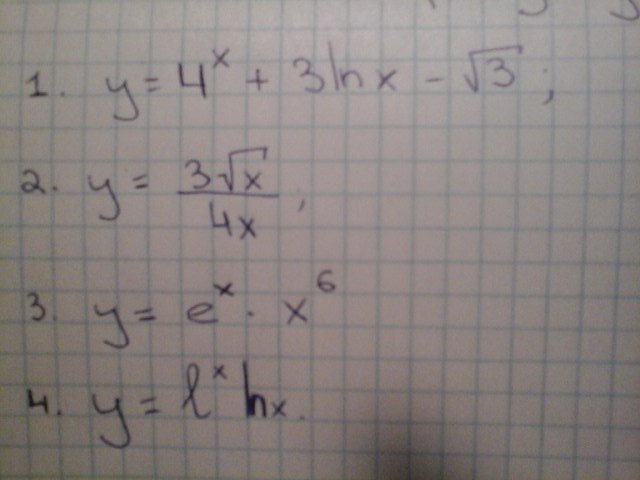 1. y = 4^x + 3 ln x - √3 ;
2. y = 3√x / 4x ;
3. y = e^x · x^6
4. y = ℓ^x ln x.